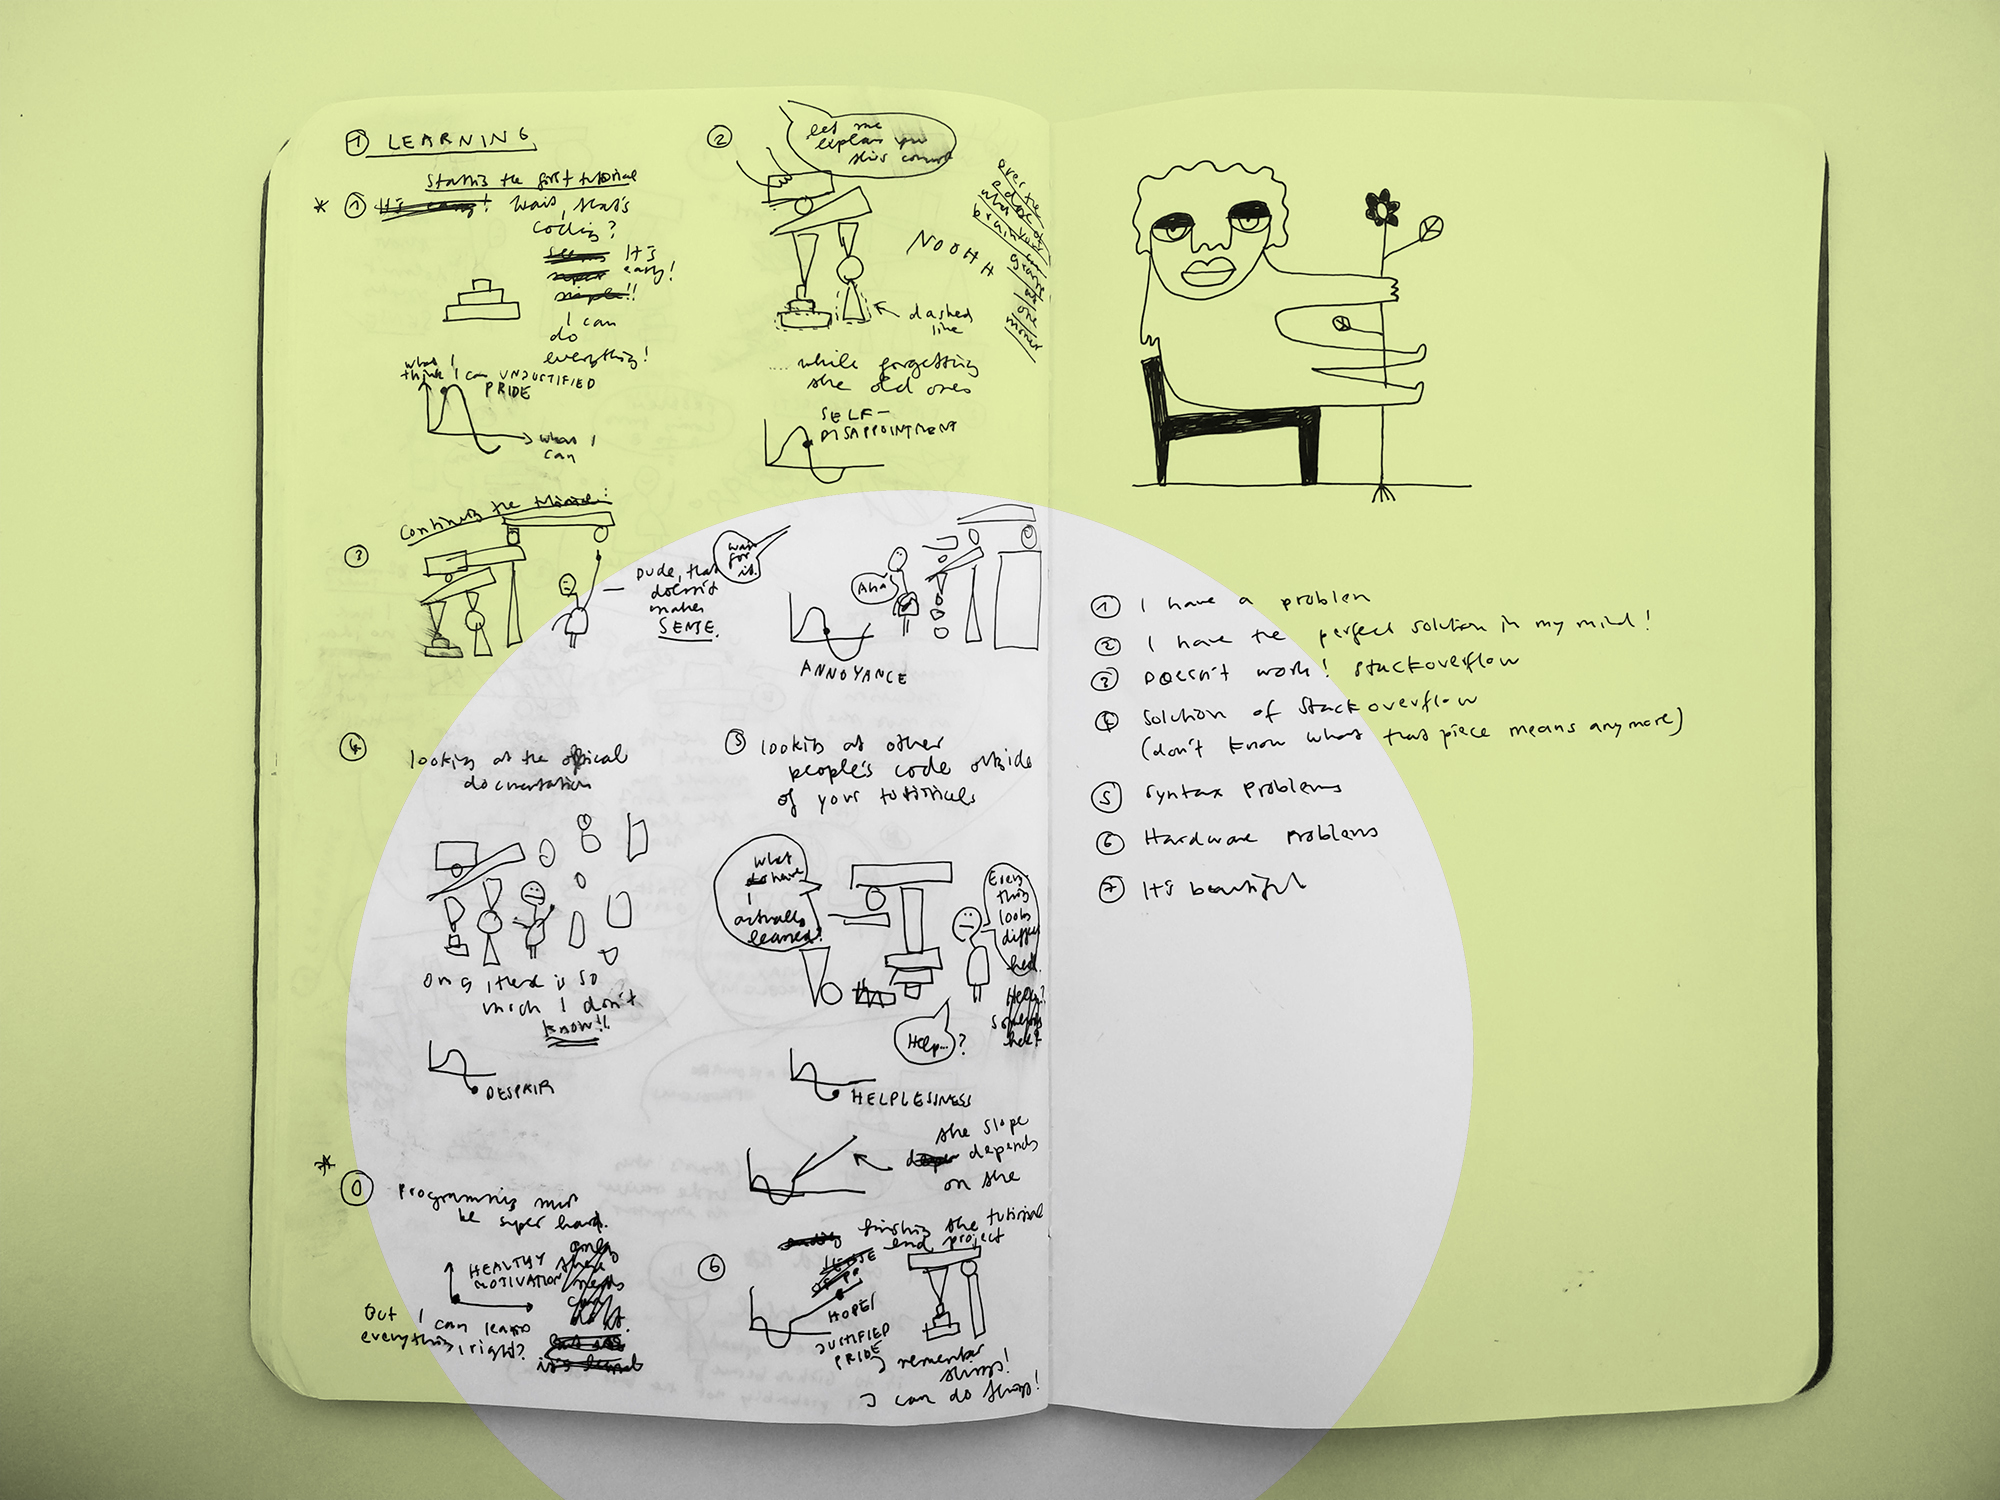 1 LEARNING
Starting the first tutorial
* 1 It's easy! Wait, that's
coding?
seems It's
super easy!
simple!!
I can
do
everything!
what I
think I can UNJUSTIFIED
PRIDE
what I
can
2
let me
explain you
this
NOOHH
over the
edge of
what your
brain can
grasp
at
one
moment
dashed
line
.... while forgetting
the old ones
SELF-
DISAPPOINTMENT
Continuing the tutorial:
3
Dude, that
doesn't
makes
SENSE.
wait
for
it.
AHA
ANNOYANCE
4 looking at the official
documentation
omg, there is so
much I don't
know!!
DESPAIR
5 looking at other
people's code outside
of your tutorials
what
do have
I
actually
learned?
Every-
thing
looks
diffe
Help...?
Help?
HELPLESSNESS
the slope
depends
on the
*
0 Programming must
be super hard.
HEALTHY
MOTIVATION
But I can learn
everything, right?
6 ending finishing the tutorial
end project
HOPE/
JUSTIFIED
PRIDE
I remember
things!
I can do things!
1 I have a problem
2 I have the perfect solution in my mind!
3 Doesn't work! stackoverflow
4 Solution of stackoverflow
(don't know what that piece means anymore)
5 Syntax problems
6 Hardware problems
7 It's beautiful